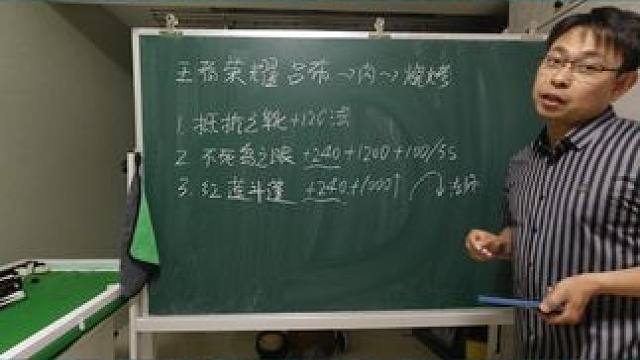 王者荣耀 吕布→肉→烧烤
1. 抵抗之靴+120法
2. 不死鸟之眼 +240+1200+100/5s
3. 红莲斗篷 +240+1000↑